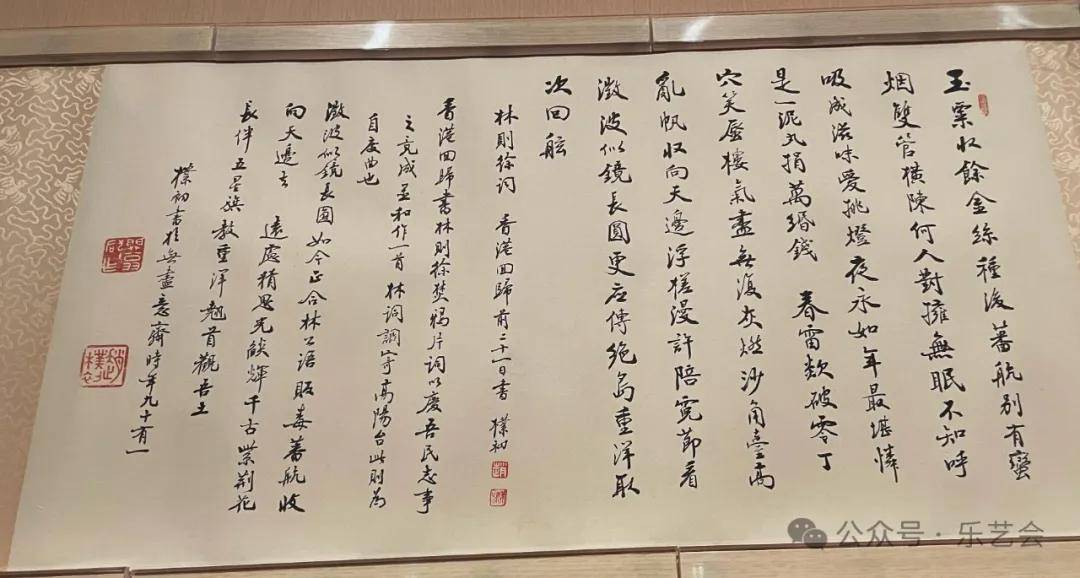 玉粟收餘金絲種後蕃航別有蠻
烟雙管橫陳何人對擁無眠不知呼
吸成滋味愛挑燈夜永如年最堪憐
是一泥丸捐萬緡錢 春雷欻破零丁
穴笑蜃樓氣盡無復灰燃沙角臺高
亂帆收向天邊浮槎漫許陪霓節看
澂波似鏡長圓更应傳絶島重洋取
次回舷
林則徐詞 香港回歸前二十一日書 樸初
香港回歸書林則徐焚鴉片詞以慶吾民志事
之竟成並和作一首 林詞調寄高陽台此則為
自度曲也
澂波似鏡長圓如今正合林公語販毒蕃航收
向天邊去 遠處精思光燄輝千古紫荊花
長伴五星旗教重洋翹首觀吾土
樸初書於無盡意齋時年九十有一
趙樸初
公众号·乐艺会